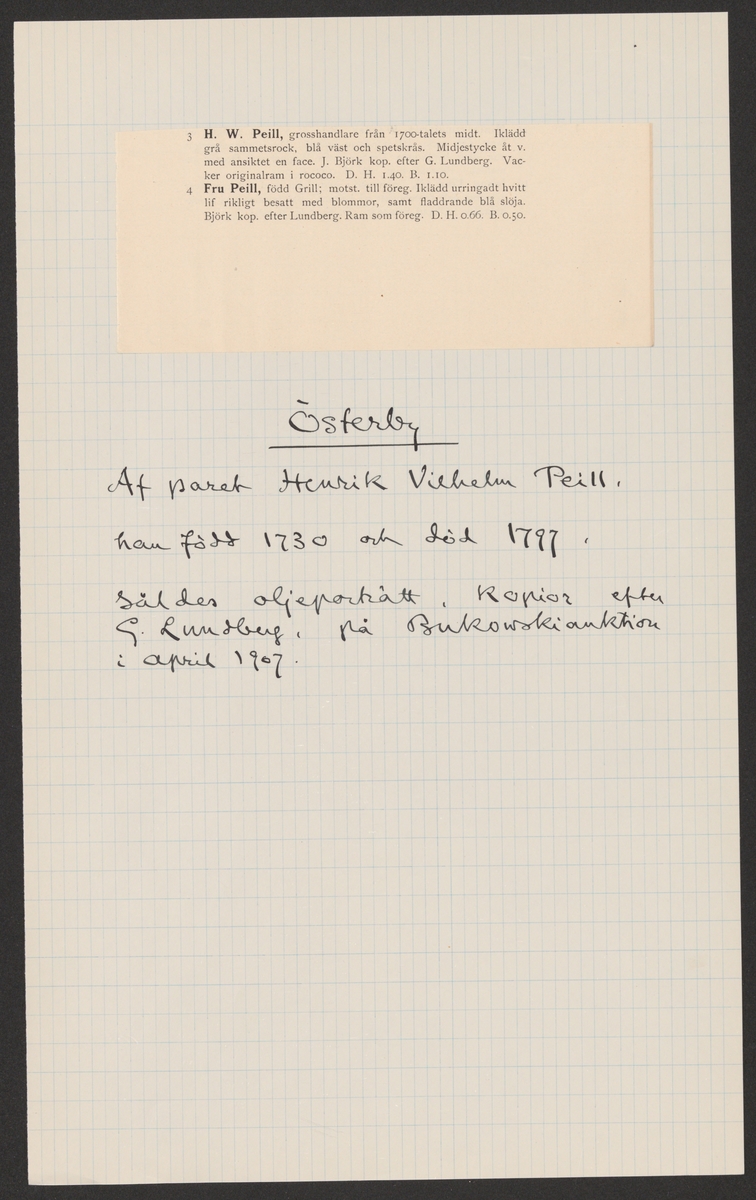 3 H. W. Peill, grosshandlare från 1700-talets midt. Iklädd
grå sammetsrock, blå väst och spetskrås. Midjestycke åt v.
med ansiktet en face. J. Björk kop. efter G. Lundberg. Vac-
ker originalram i rococo. D. H. 1.40. B. 1.10.
4 Fru Peill, född Grill; motst. till föreg. Iklädd urringadt hvitt
lif rikligt besatt med blommor, samt fladdrande blå slöja.
Björk kop. efter Lundberg. Ram som föreg. D. H. 0.66. B. 0.50.
Österby
Af paret Henrik Vilhelm Peill,
han född 1730 och död 1797,
såldes oljeporträtt, kopior efter
G. Lundberg, på Bukowskiauktion
i april 1907.